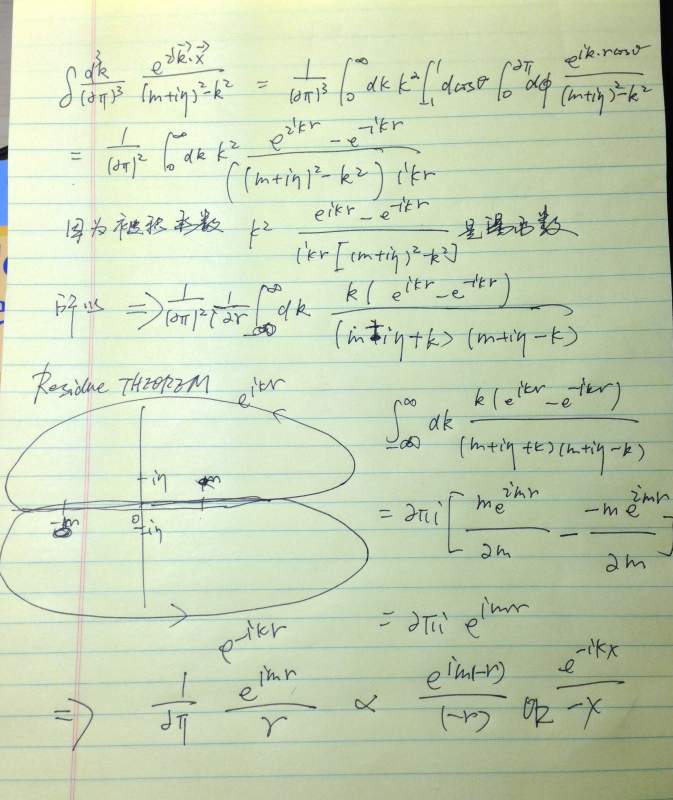 ∫ d³k/(2π)³ e^{ik⃗·x⃗}/((m+iη)²-k²) = 1/(2π)³ ∫₀^∞ dk k² ∫₋₁¹ dcosθ ∫₀^{2π} dϕ e^{ik·rcosθ}/((m+iη)²-k²)
= 1/(2π)² ∫₀^∞ dk k² (e^{ikr} - e^{-ikr})/(((m+iη)²-k²) ikr)
因为被积函数 k² (e^{ikr} - e^{-ikr})/(ikr[(m+iη)²-k²]) 是偶函数
所以 ⇒ 1/(2π)² 1/(i2r) ∫_{-∞}^{∞} dk k(e^{ikr} - e^{-ikr})/((m+iη+k)(m+iη-k))
Residue THEOREM
e^{ikr}
iη
m
-m
0
-iη
e^{-ikr}
∫_{-∞}^{∞} dk k(e^{ikr} - e^{-ikr})/((m+iη+k)(m+iη-k))
= 2πi [ me^{imr}/2m - -me^{imr}/2m ]
= 2πi e^{imr}
⇒ 1/2π e^{imr}/r ∝ e^{im(-r)}/(-r) OR e^{-ikx}/-x